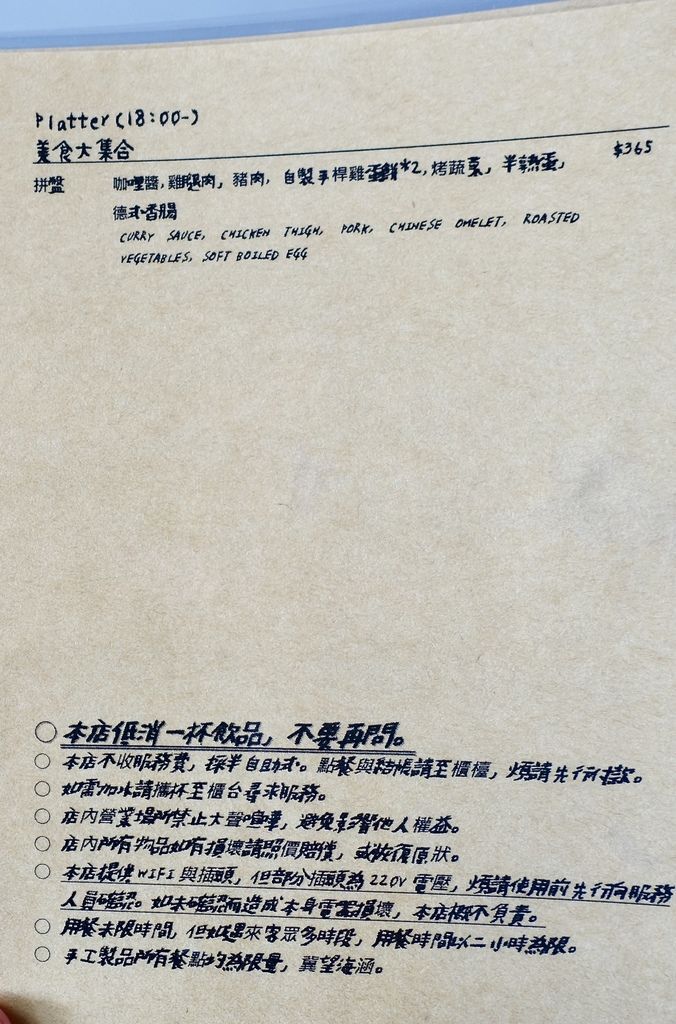 Platter(18:00-)
美食大集合 $365
拼盤 咖哩醬, 雞腿肉, 豬肉, 自製手桿雞蛋餅*2, 烤蔬菜, 半熟蛋,
德式香腸
CURRY SAUCE, CHICKEN THIGH, PORK, CHINESE OMELET, ROASTED
VEGETABLES, SOFT BOILED EGG
○ 本店低消一杯飲品, 不要再問。
○ 本店不收服務費, 採半自助式。點餐與結帳請至櫃檯, 煩請先行付款。
○ 如需加水請攜杯至櫃台尋求服務。
○ 店內營業場所禁止大聲喧嘩, 避免影響他人權益。
○ 店內所有物品如有損壞請照價賠償, 或恢復原狀。
○ 本店提供WIFI與插頭, 但部分插頭為220V電壓, 煩請使用前先行向服務
人員確認。如未確認而造成本身電器損壞, 本店概不負責。
○ 用餐未限時間, 但如遇來客眾多時段, 用餐時間以二小時為限。
○ 手工製品所有餐點均為限量, 冀望海涵。